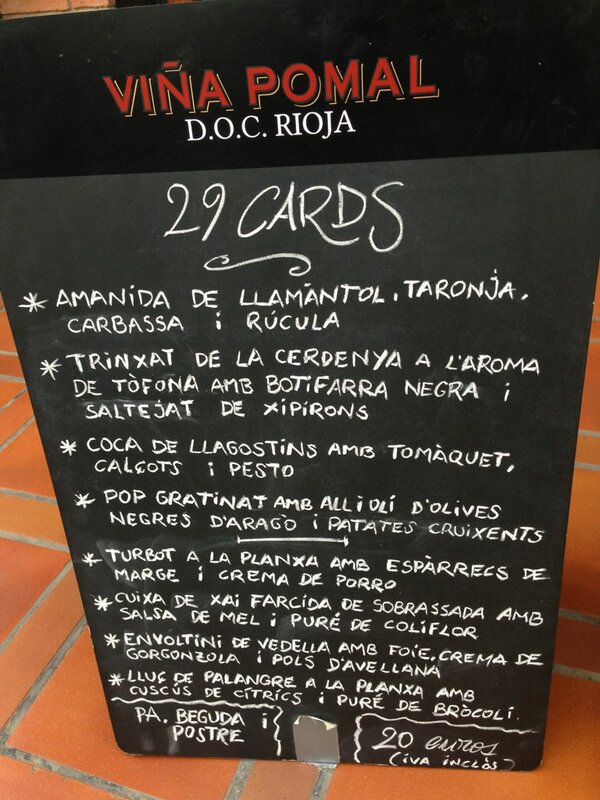 VIÑA POMAL
D.O.C. RIOJA
29 CARDS
* AMANIDA DE LLAMÀNTOL, TARONJA,
CARBASSA i RÚCULA
* TRINXAT DE LA CERDENYA A L'AROMA
DE TÒFONA AMB BOTIFARRA NEGRA i
SALTEJAT DE XIPIRONS
* COCA DE LLAGOSTINS AMB TOMÀQUET,
CALÇOTS i PESTO
* POP GRATINAT AMB ALLIOLÍ D'OLIVES
NEGRES D'ARAGÓ i PATATES CRUIXENTS
* TURBOT A LA PLANXA AMB ESPÀRRECS DE
MARGE i CREMA DE PORRO
* CUIXA DE XAI FARCIDA DE SOBRASSADA AMB
SALSA DE MEL i PURÉ DE COLIFLOR
* ENVOLTINI DE VEDELLA AMB FOIE, CREMA DE
GORGONZOLA i POLS D'AVELLANA
* LLUÇ DE PALANGRE A LA PLANXA AMB
CUSCÚS DE CÍTRICS i PURÉ DE BRÒCOLI.
PA, BEGUDA i
POSTRE
20 euros
(iVA iNCLÒS)